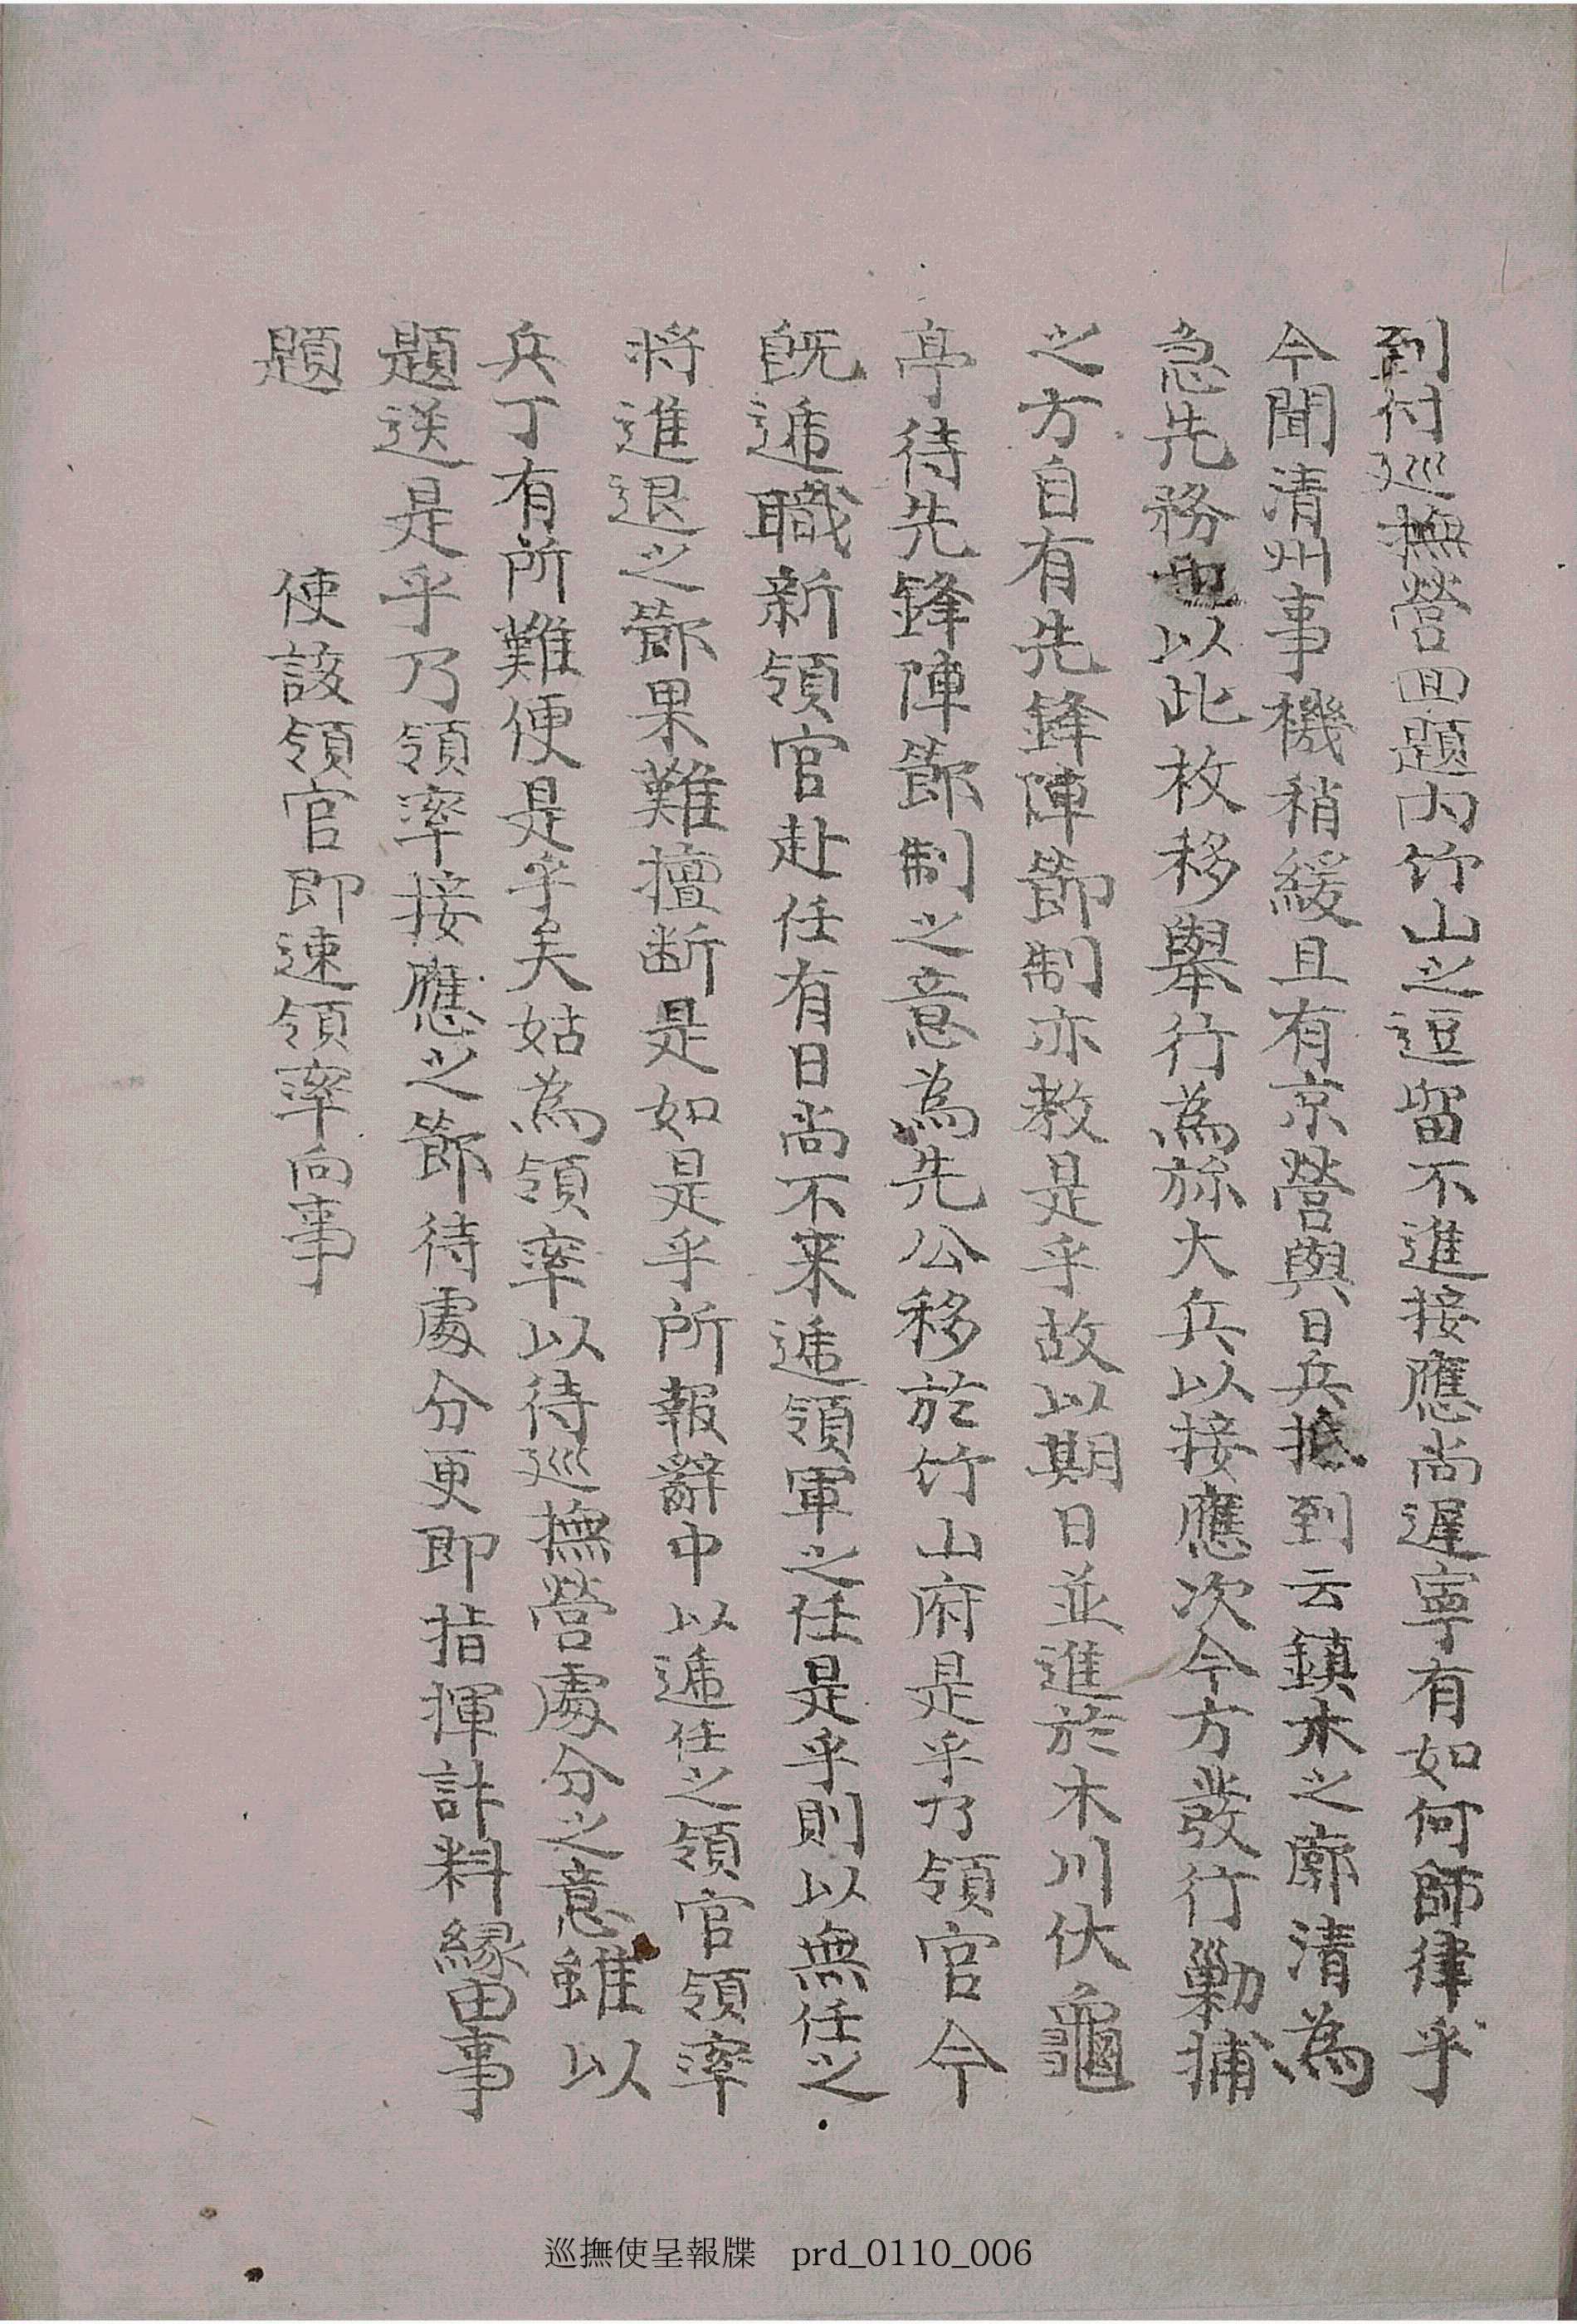 到付巡撫營回題內竹山之逗留不進接應尚遲寧有如何師律乎
今聞清州事機稍緩且有京營與日兵抵到云鎮木之廓清為
急先務以此枚移舉行為旀大兵以接應次今方發行勦捕
之方自有先鋒陣節制亦教是乎故以期日並進於木川伏龜
亭待先鋒陣節制之意為先公移於竹山府是乎乃領官今
旣遞職新領官赴任有日尚不来遞領軍之任是乎則以無任之
將進退之節果難擅断是如是乎所報辭中以遞任之領官領率
兵丁有所難便是乎矣姑為領率以待巡撫營處分之意雖以
題送是乎乃領率接應之節待處分更即指揮計料緣由事
題 使該領官即速領率向事
巡撫使呈報牒 prd_0110_006